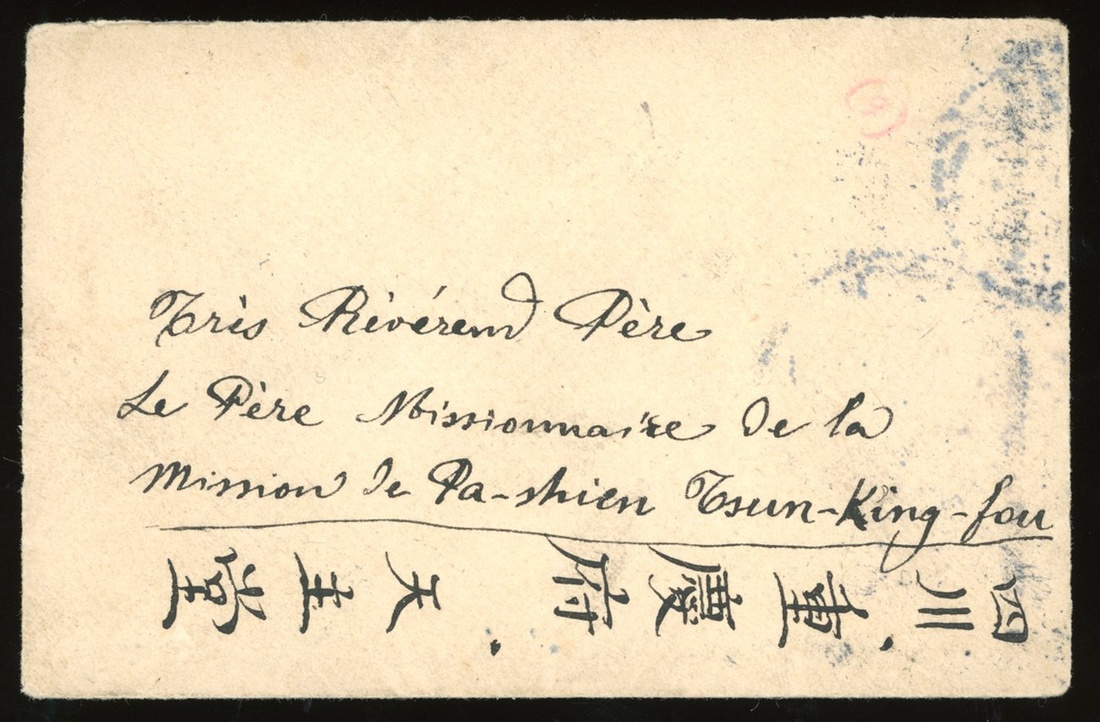 Très Révérend Père
Le Père Missionnaire de la
Mission de Pa-shien Tsun-King-fou
四川、重慶府、天主堂